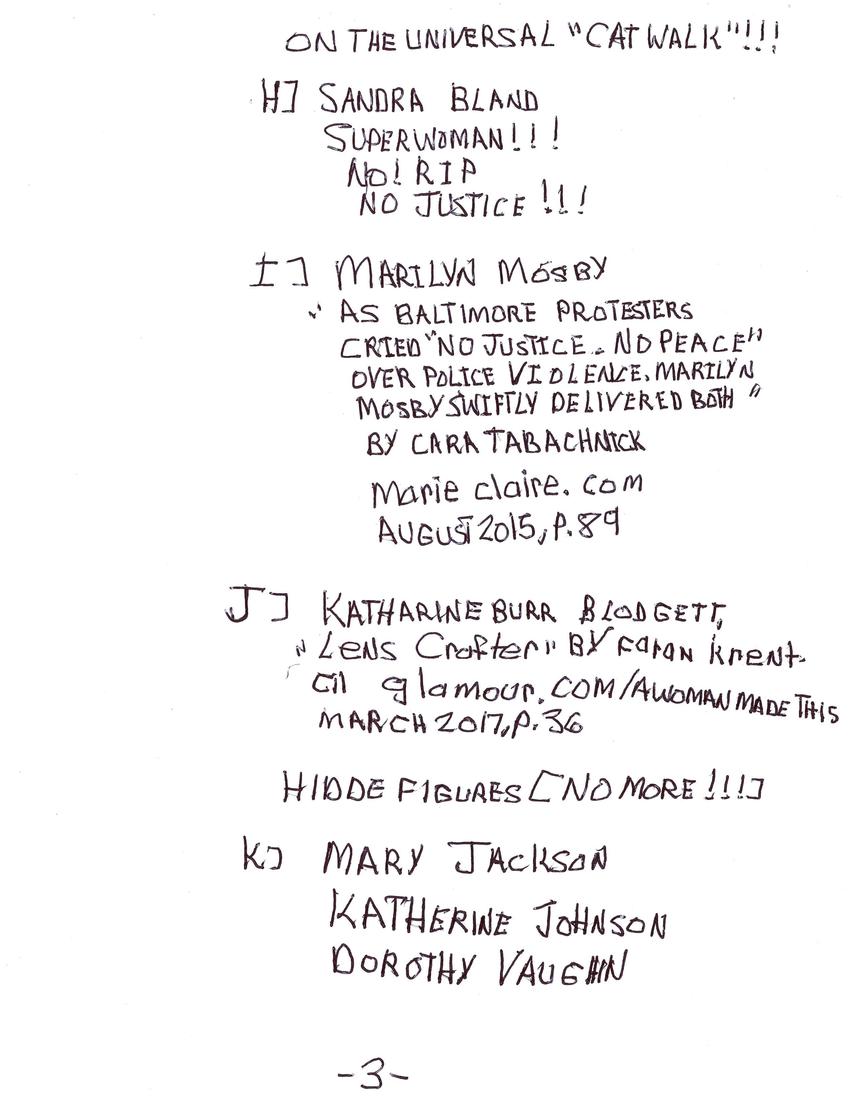 ON THE UNIVERSAL "CAT WALK"!!!
H] SANDRA BLAND
SUPERWOMAN!!!
NO! RIP
NO JUSTICE!!!
I] MARILYN MOSBY
" AS BALTIMORE PROTESTERS
CRIED "NO JUSTICE. NO PEACE"
OVER POLICE VIOLENCE. MARILYN
MOSBY SWIFTLY DELIVERED BOTH "
BY CARA TABACHNICK
Marie claire. com
AUGUST 2015, P. 89
J] KATHARINE BURR BLODGETT,
" Lens Crafter" BY Faran Krent-
cil glamour. COM/AWOMAN MADE THIS
MARCH 2017, P. 36
HIDDE FIGURES [NO MORE!!!]
K] MARY JACKSON
KATHERINE JOHNSON
DOROTHY VAUGHN
-3-